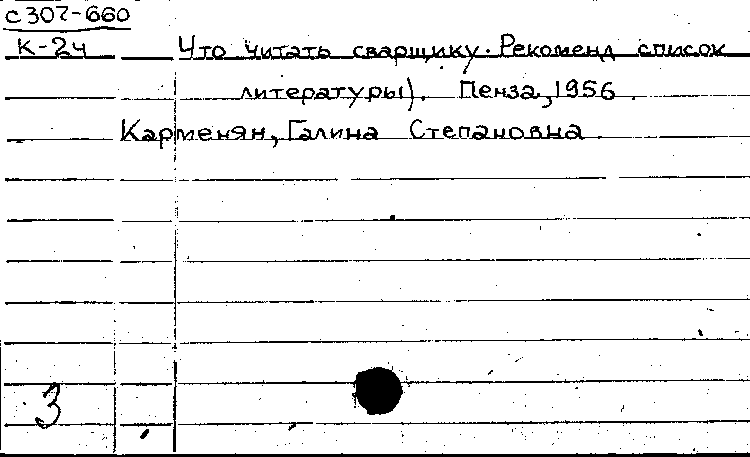 с307-660
К-24 Что читать сварщику. Рекоменд список
литературы). Пенза, 1956.
Карменян, Галина Степановна.
3